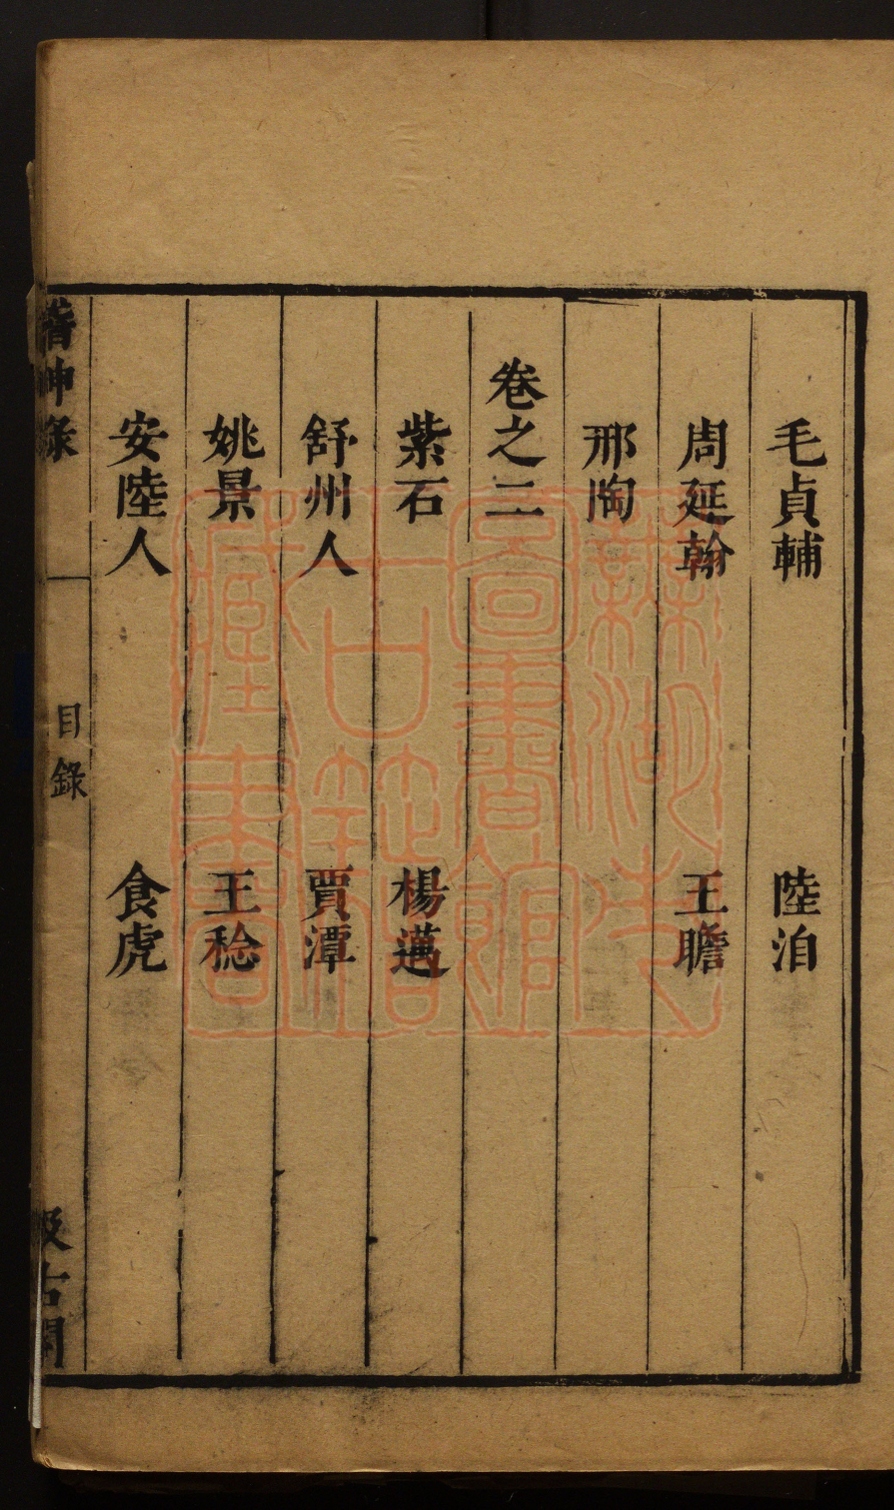 毛貞輔　陸洎
周延翰　王瞻
邢陶
卷之二
紫石　楊邁
舒州人　賈潭
姚景　王稔
安陸人　食虎
稽神錄　目錄　汲古閣